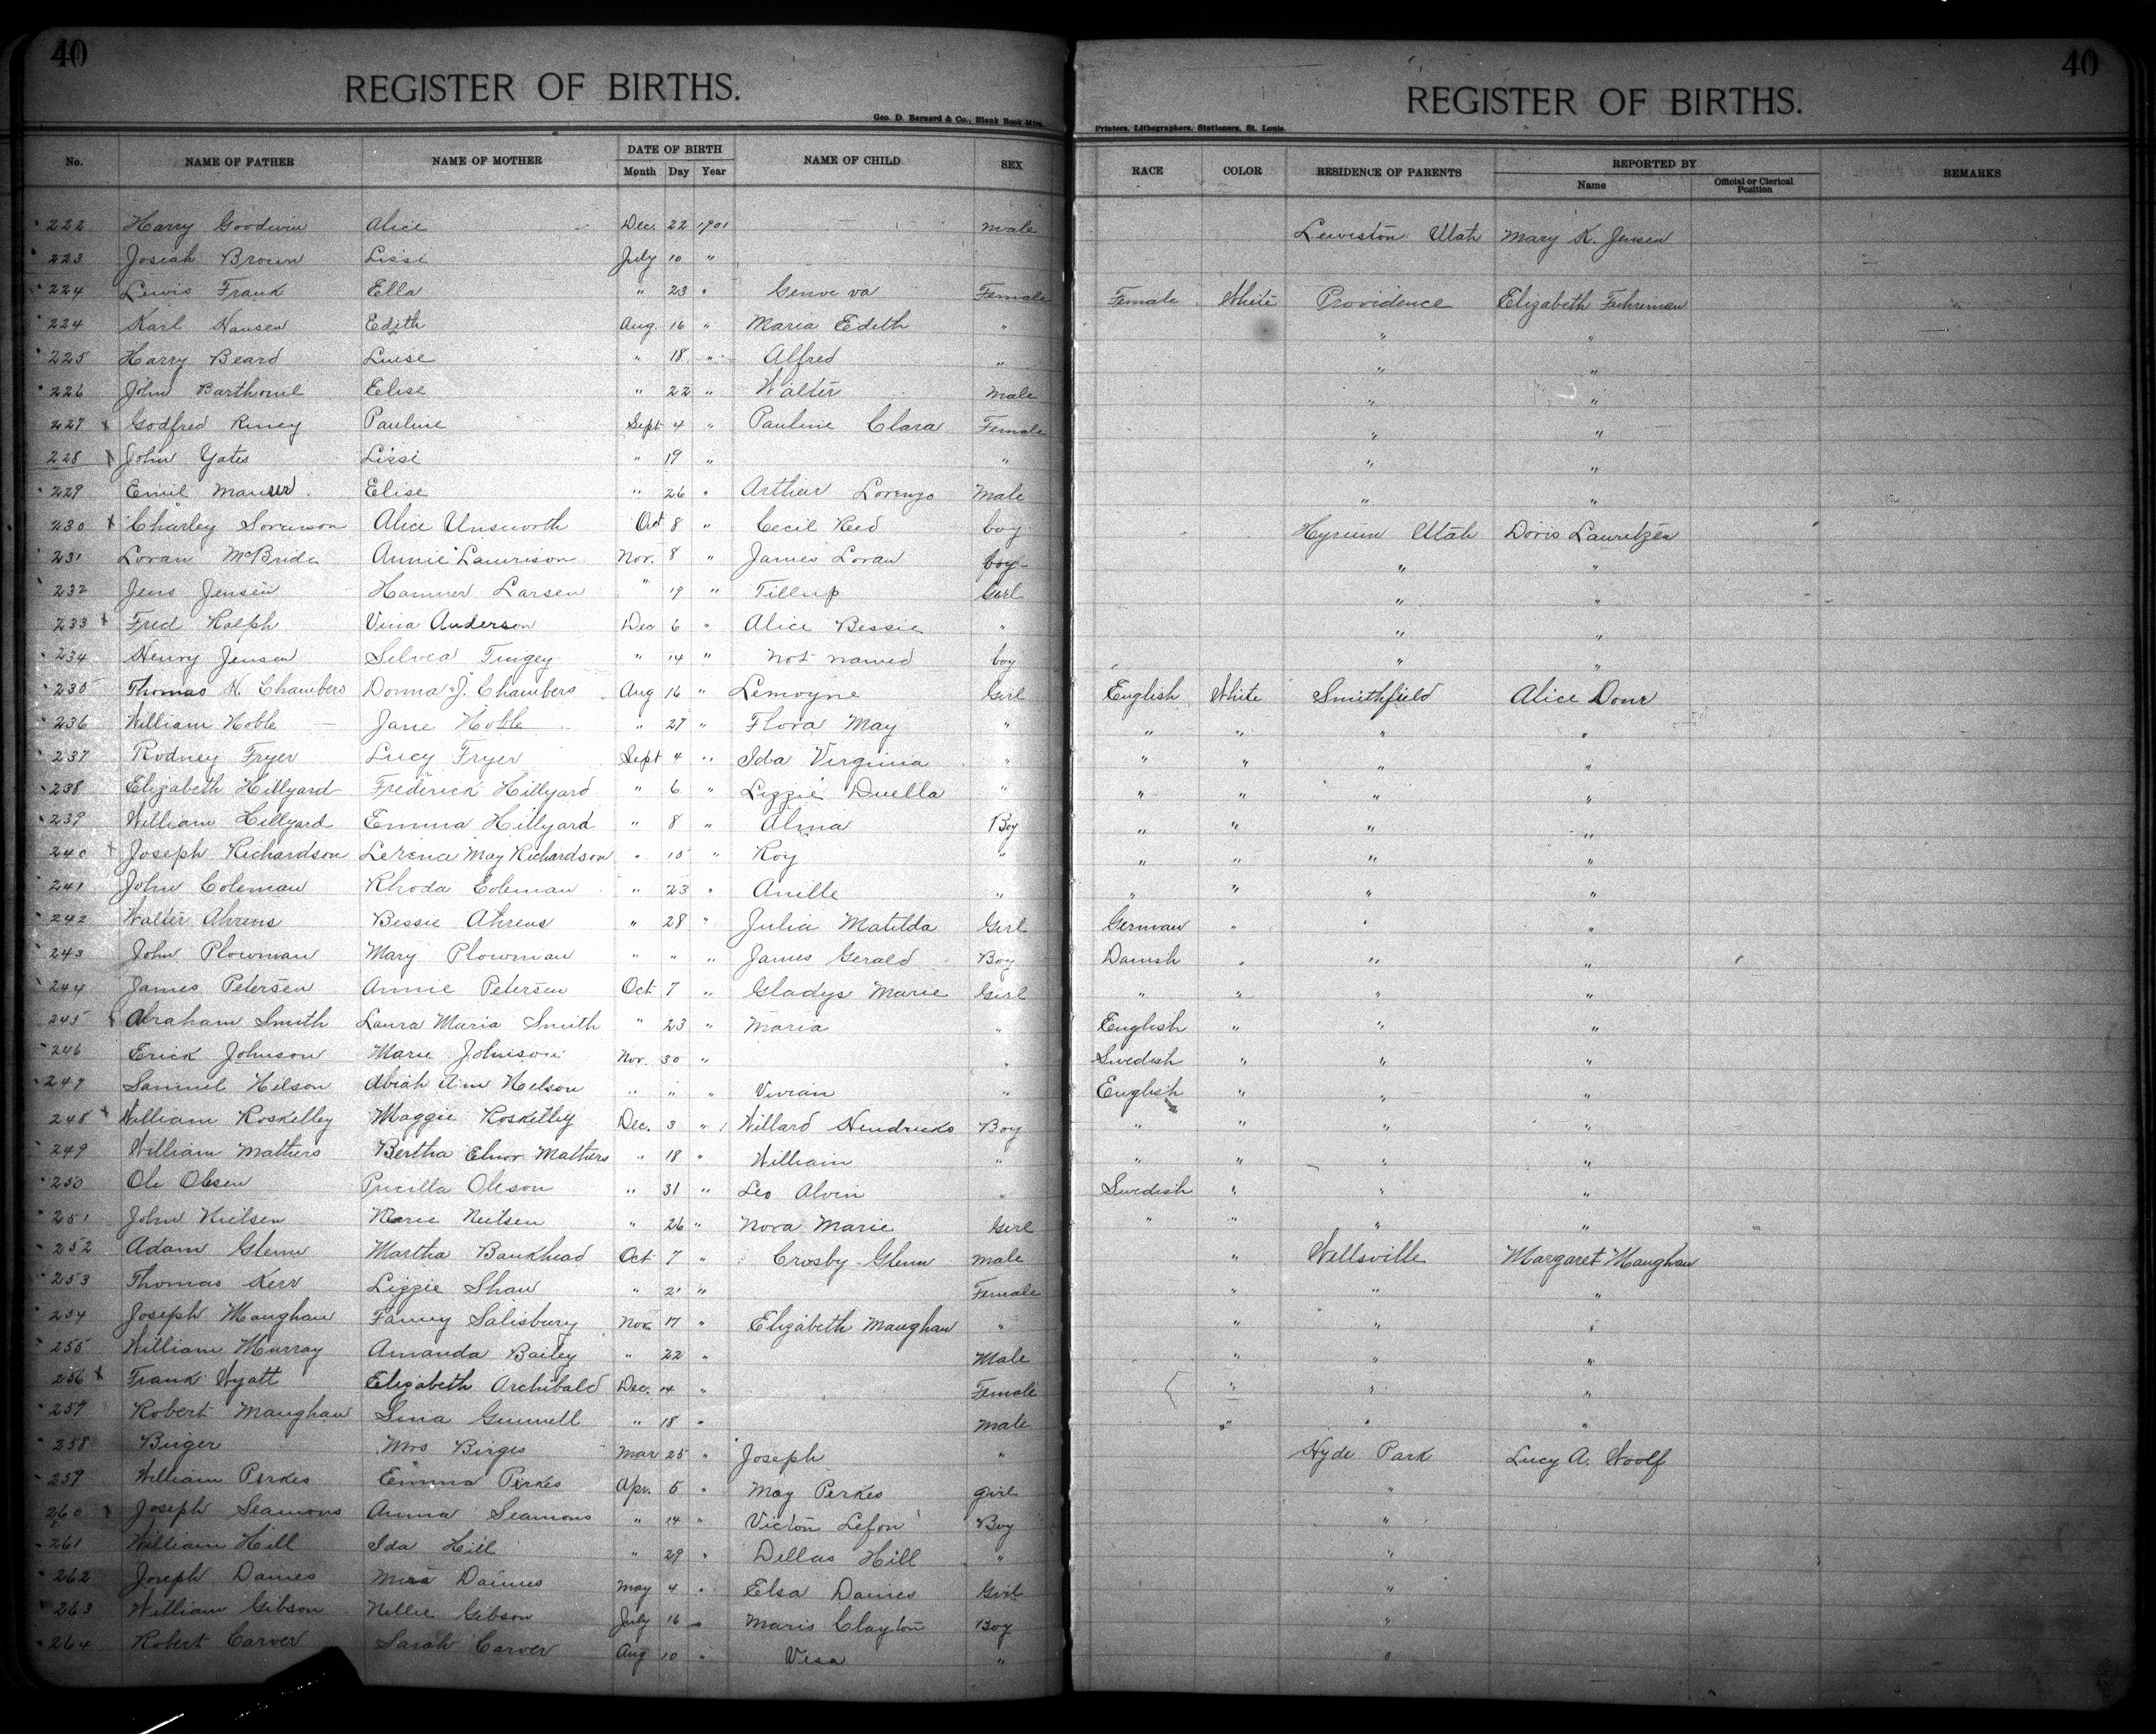 40
REGISTER OF BIRTHS.
Geo. D. Barnard & Co., Blank Book Mfrs.
No. NAME OF FATHER NAME OF MOTHER DATE OF BIRTH Month Day Year NAME OF CHILD SEX
40
REGISTER OF BIRTHS.
Printers, Lithographers, Stationers, St. Louis.
RACE COLOR RESIDENCE OF PARENTS REPORTED BY Name Official or Clerical Position REMARKS
222 Harry Goodwin Alice Dec. 22 1901 male Lewiston Utah Mary K. Jensen
223 Josiah Brown Lissi July 10 "
224 Lewis Frank Ella " 23 " Geneva Female Female White Providence Elizabeth Fuhreman
224 Karl Hansen Edith Aug. 16 " Maria Edith " " "
225 Harry Beard Luese " 18 " Alfred " " "
226 John Barthome Elise " 22 " Walter Male " "
227 Godfred Pauline Sept 4 " Pauline Clara Female " "
228 John Yates Lissi " 19 " " " "
229 Emil Mauser Elise " 26 " Arthur Lorenzo Male " "
230 Charley Sorenson Alice Unsworth Oct 8 " Cecil Red boy Hyrum Utah Doris Lauritzen
231 Loran McBride Annie Laurison Nov. 8 " James Loran boy " "
232 Jens Jensen Hanner Larsen " 19 " Tillup Girl " "
233 Fred Ralph Vina Anderson Dec 6 " Alice Bessie " " "
234 Henry Jensen Silvea Tingey " 14 " not named boy " "
235 Thomas H. Chambers Donna J. Chambers Aug 16 " Lemoyne Girl English White Smithfield Alice Dour
236 William Noble Jane Noble " 27 " Flora May " " " " "
237 Rodney Fryer Lucy Fryer Sept 4 " Ida Virginia " " " " "
238 Elizabeth Hillyard Frederick Hillyard " 6 " Lizzie Duella " " " " "
239 William Hillyard Emma Hillyard " 8 " Alma Boy " " " "
240 Joseph Richardson Lerena May Richardson " 15 " Roy " " " " "
241 John Coleman Rhoda Coleman " 23 " Anille " " " " "
242 Walter Ahrens Bessie Ahrens " 28 " Julia Matilda Girl German " " "
243 John Plowman Mary Plowman " " " James Gerald Boy Danish " " "
244 James Petersen Annie Petersen Oct 7 " Gladys Marie Girl " " " "
245 Abraham Smith Laura Maria Smith " 23 " Maria " English " " "
246 Erick Johnson Marie Johnson Nov. 30 " " Swedish " " "
247 Samuel Nelson Abiah Ann Nelson " " " Vivian " English " " "
248 William Roskelley Maggie Roskelley Dec. 3 " Willard Hendricks Boy " " " "
249 William Mathers Bertha Elnor Mathers " 18 " William " " " " "
250 Ole Olesen Pricilla Oleson " 31 " Leo Alvin " Swedish " " "
251 John Nielsen Marie Neilsen " 26 " Nora Marie Girl " " " "
252 Adam Glenn Martha Bankhead Oct 7 " Crosby Glenn male " Wellsville Margaret Maughan
253 Thomas Kerr Lizzie Shaw " 21 " Female " " "
254 Joseph Maughan Fanny Salisbury Nov. 17 " Elizabeth Maughan " " " "
255 William Murray Amanda Bailey " 22 " Male " " "
256 Frank Wyatt Elizabeth Archibald Dec. 14 " Female " " "
257 Robert Maughan Lina Gunnell " 18 " male " " "
258 Birger Mrs Birges Mar 25 " Joseph " Hyde Park Lucy A. Woolf
259 William Perkes Emma Perkes Apr. 5 " May Perkes girl "
260 Joseph Seamons Anna Seamons " 14 " Victon Lefon Boy "
261 William Hill Ida Hill " 29 " Dellas Hill " "
262 Joseph Daines Mira Daines May 4 " Elsa Daines Girl "
263 William Gibson Nellie Gibson July 16 " Maris Clayton Boy "
264 Robert Carver Sarah Carver Aug 10 " Visa " "